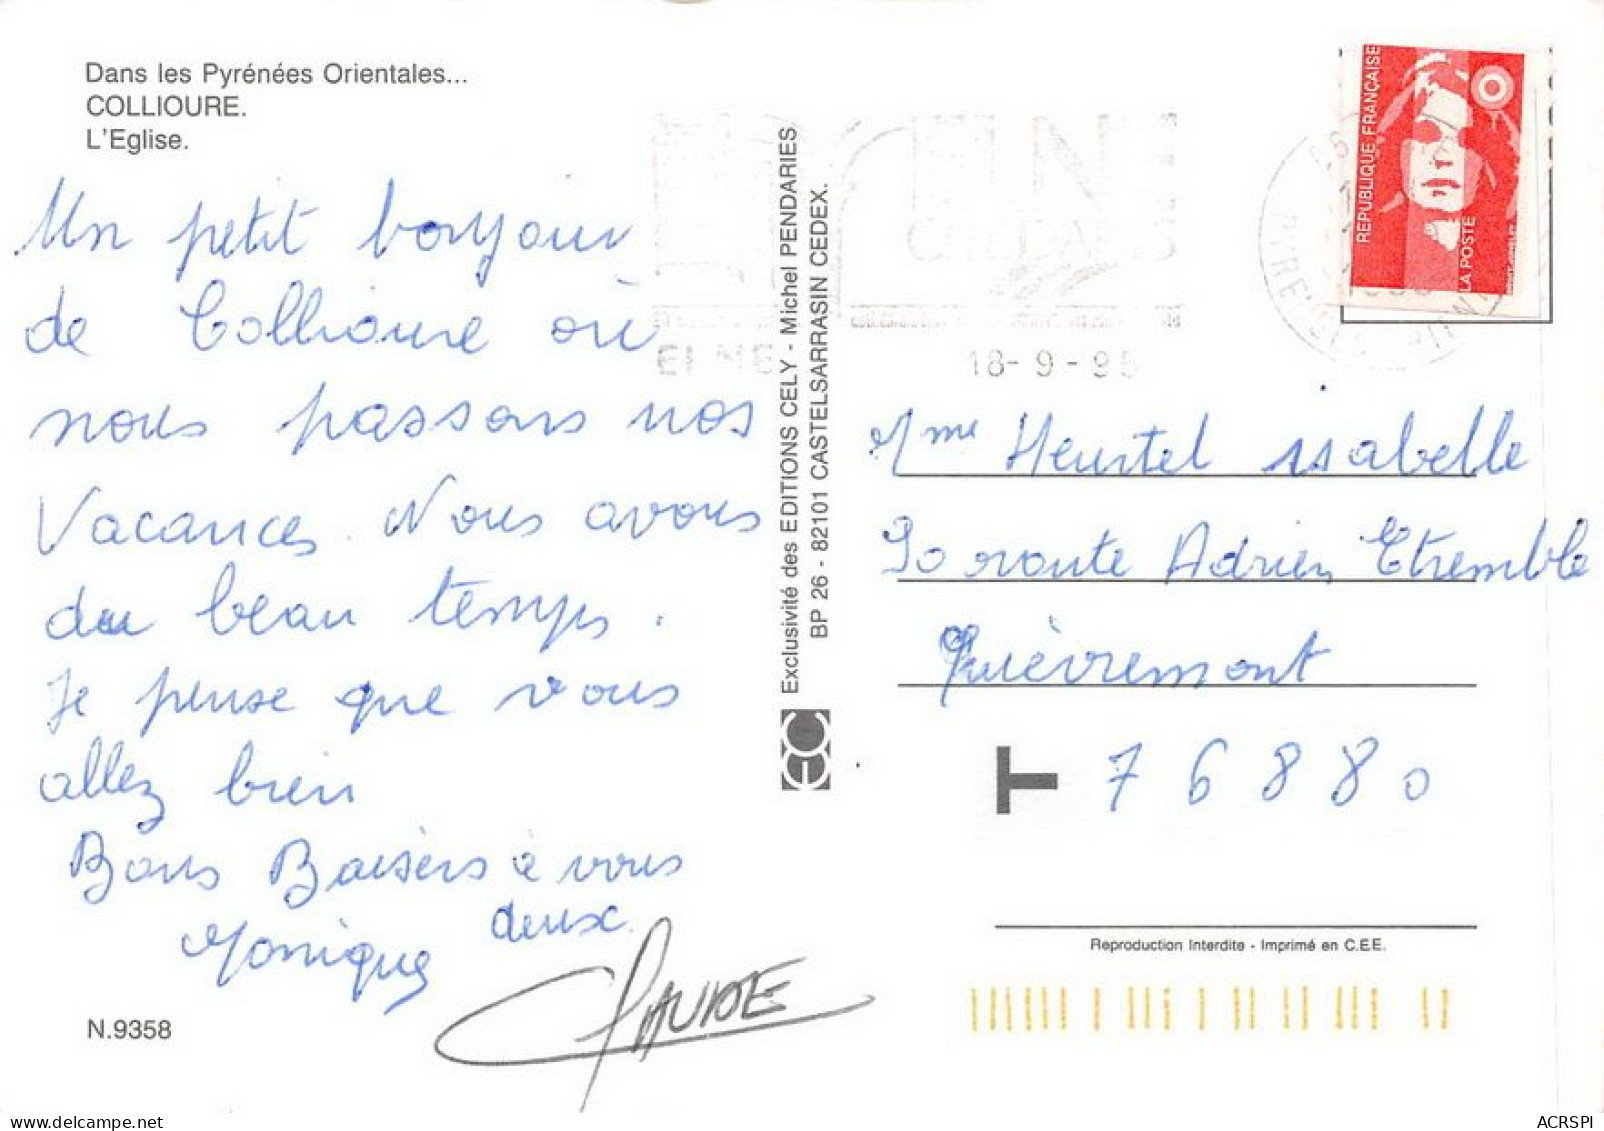 Dans les Pyrénées Orientales...
COLLIOURE.
L'Eglise.
Un petit bonjour
de Collioure où
nous passons nos
Vacances. Nous avons
du beau temps.
Je pense que vous
allez bien
Bons Baisers à vous
deux.
Monique
CLAUDE
N.9358
Exclusivité des EDITIONS CELY - Michel PENDARIES
BP 26 - 82101 CASTELSARRASIN CEDEX.
ELNE
18-9-95
REPUBLIQUE FRANÇAISE
LA POSTE
Mme Heurtel isabelle
90 route Adrien Etremble
Quièvremont
T 76880
Reproduction Interdite - Imprimé en C.E.E.
ACRSPI